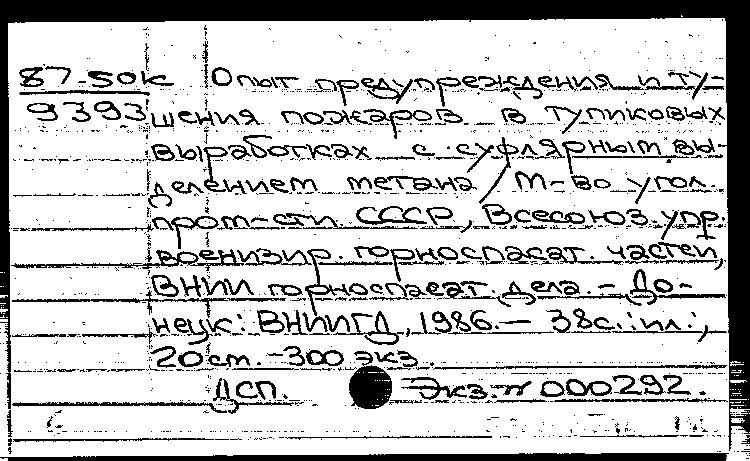 87-50к Опыт предупреждения и ту-
9393 шения пожаров в тупиковых
выработках с суфлярным вы-
делением метана / М-во угол.
пром-сти СССР, Всесоюз. упр.
военизир. горноспасат. частей,
ВНИИ горноспасат. дела. - До-
нецк: ВНИИГД, 1986. - 38с.: ил.;
20см. - 300 экз.
ДСП. Экз. № 000292.